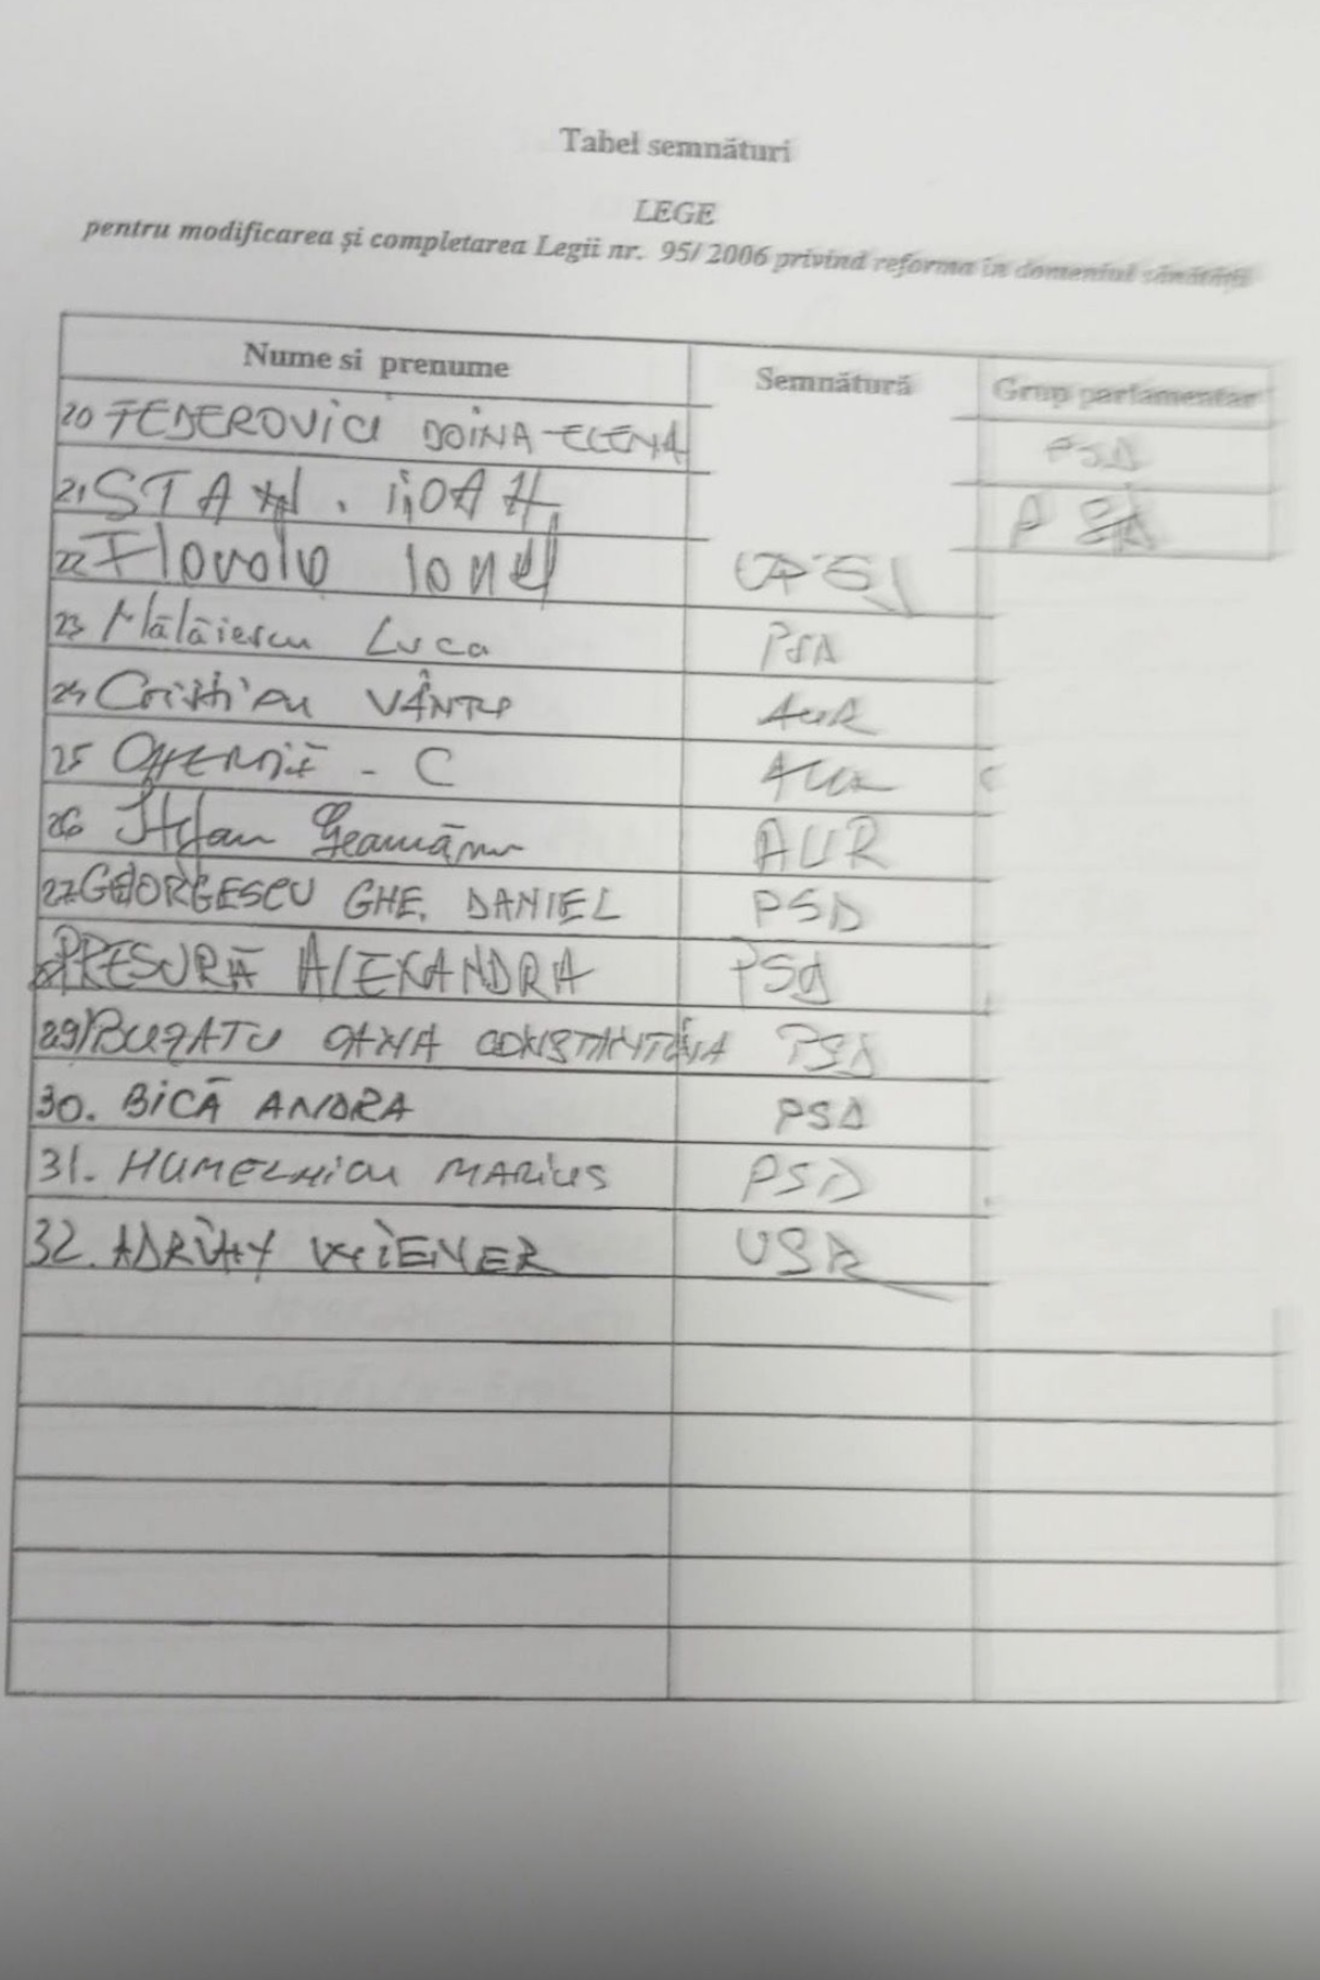 Tabel semnături
LEGE
pentru modificarea și completarea Legii nr. 95/ 2006 privind reforma în domeniul sănătății
Nume si prenume Semnătură Grup parlamentar
20 FEDEROVICI DOINA-ELENA PSD
21 STAN. IOAN PSD
22 Ionel
23 Mălăiescu Luca PSD
24 Cristian VÂNTU AUR
25 - C AUR
26 Ștefan Geamănu AUR
27 GEORGESCU GHE. DANIEL PSD
PRESURĂ ALEXANDRA PSD
29) BUZATU OANA CONSTANTINA PSD
30. BICĂ ANDRA PSD
31. HUMELNICU MARIUS PSD
32. ADRIAN WIENER USR